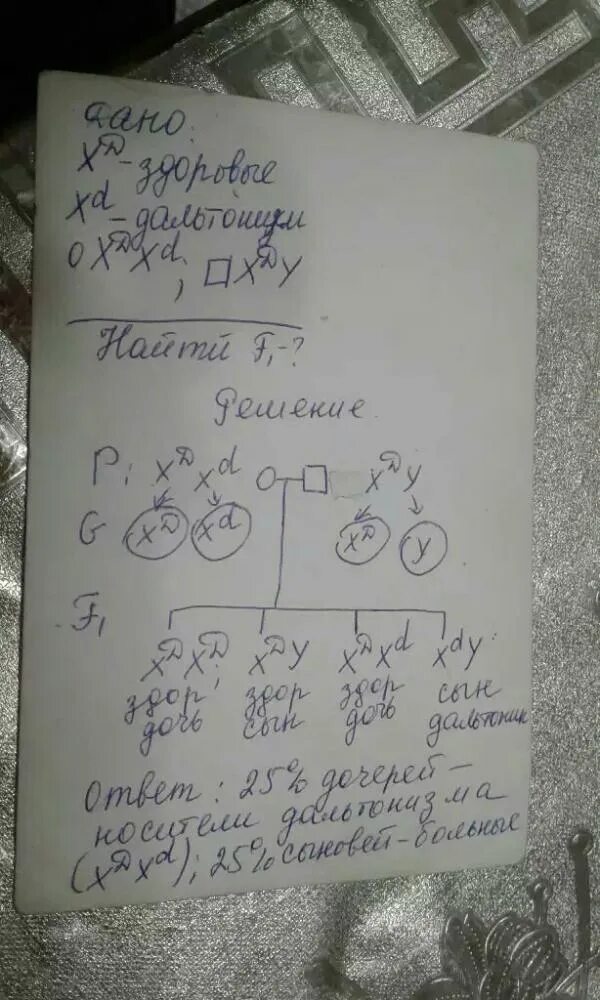 Дано:
X^D - здоровые
X^d - дальтонизм
O X^D X^d ; □ X^D Y
Найти F₁ - ?
Решение.
P: X^D X^d O □ X^D Y
G X^D X^d X^D Y
F₁
X^D X^D ; X^D Y X^D X^d X^d Y
здор здор здор сын
дочь сын дочь дальтоник
Ответ: 25% дочерей -
носители дальтонизма
(X^D X^d); 25% сыновей - больные